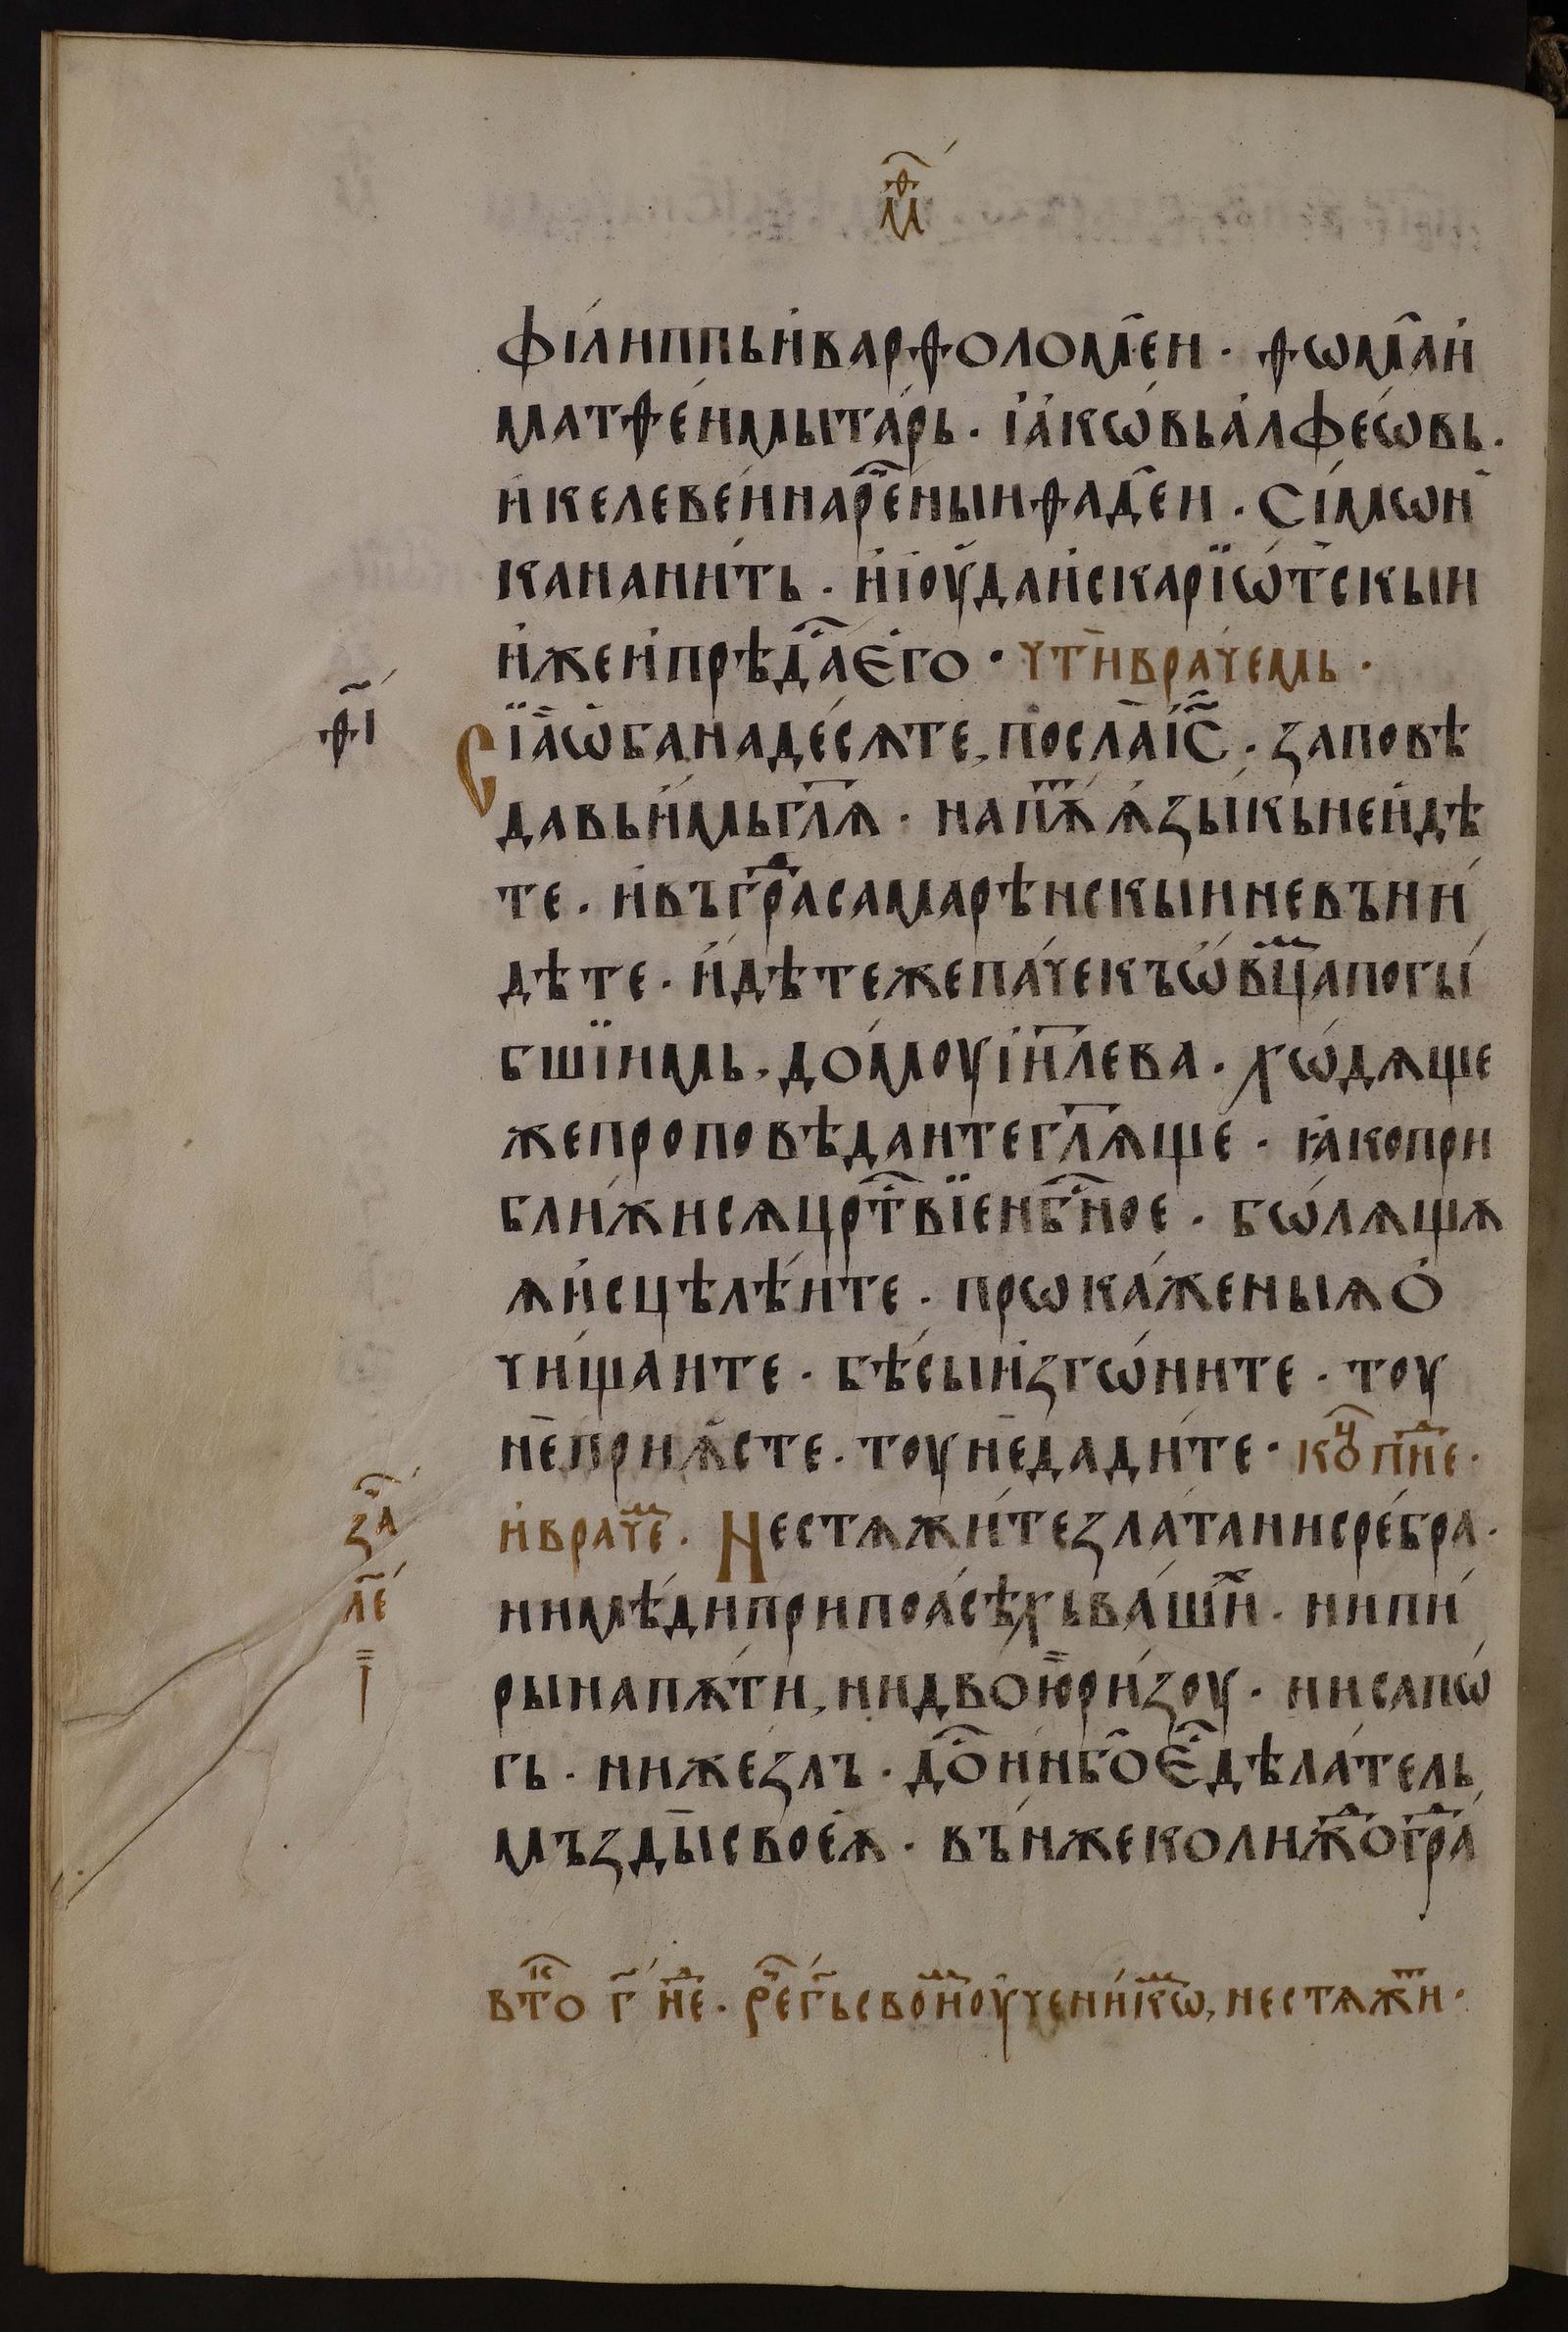 мѳ҃
філиппьи҆варѳоломе҆и · ѳѡма҆и҆
матѳе́и мыта́рь · і҆а҆кѡ́вьа҆лфеѡ́вь ·
и҆келеве́и нарⷱ҇еныи ѳаде҆и · Сі́мѡн̾
канани́ть · и҆ і҆оу҆даи҆скарїѡ́тскыи
и҆жеи҆прѣдⷭ҇ає҆го · чт҃ и҆врачемь ·
ѳ҃і
Сїа҆ѡ҆банаде́сѧте, посла҆ і҆с҃ · заповѣ
давьи҆мьгл҃ѧ · напⷮѫ ѧ҆зы́кьнеи҆дѣ
те · и҆въгрⷣа самарѣнскыи невъни́
дѣте · и҆дѣтежепа́чекъѡ҆вцⷨа погы́
бшїимь, до́моу і҆и҃лева · хѡ́дѧще
жепроповѣдаитегл҃ѧще · ꙗ҆копри
бли́жисѧцрⷭ҇твїенбⷭ҇ное · бѡ́лѧщѧ
ѧи҆сцѣлѣ́ите · прѡка́женыѧо҆
чи́щаите · бѣ́сыи҆згѡ́ните · тоу
не҆прїѧ́сте · тоу не҆дади́те · коⷰ҇пнⷣе ·
и҆врачеⷨ · Нестѧжи́тезла́таниср́ебра ·
заⷱ҇
л҃е
нимѣ́дипри поꙗсѣхьва́шиⷯ · нипи́
рынапѫти́, нидвою҆ри́зоу · нисапѡ́
гь · нижезлъ · доⷭ҇и́нбо҆єⷭ҇дѣла́тель,
мъзды̀своеѧ҆ · въ́ньжеколижⷣогрⷣа́
втⷪ҇ г҃ нⷣе · рⷱ҇е г҃ь своиⷨоу҆чени́кѡⷨ, нестѧжⷮи ·